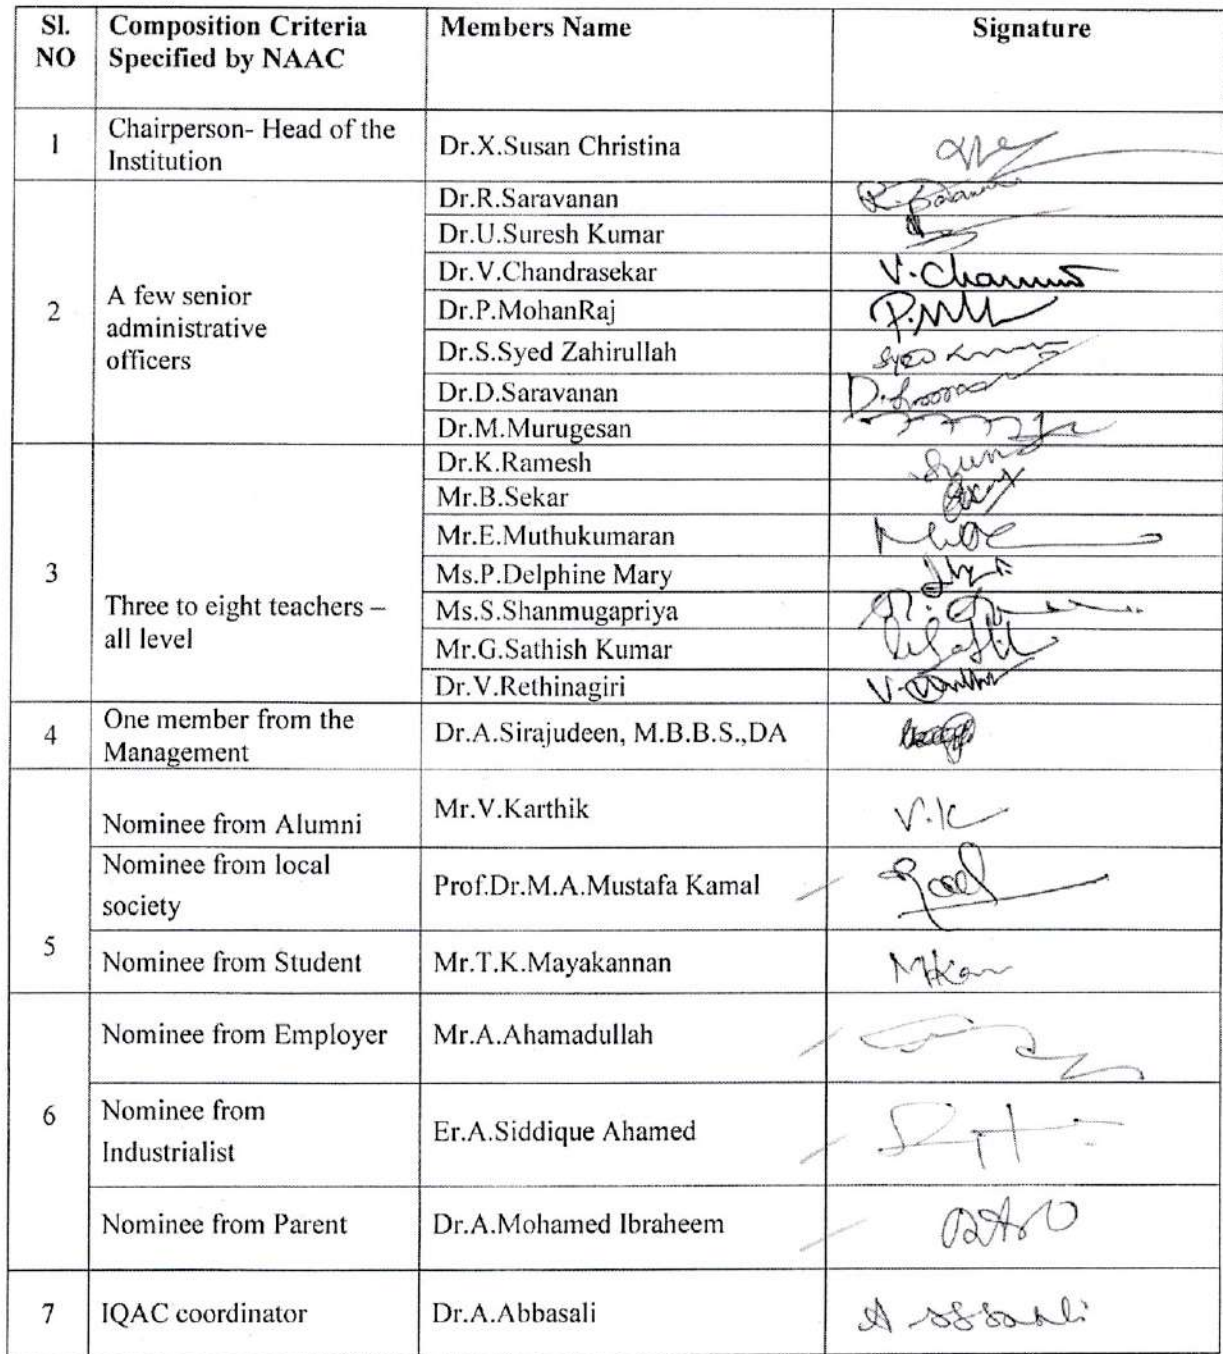 Sl. NO
Composition Criteria Specified by NAAC
Members Name
Signature
1
Chairperson- Head of the Institution
Dr.X.Susan Christina
2
A few senior administrative officers
Dr.R.Saravanan
Dr.U.Suresh Kumar
Dr.V.Chandrasekar
Dr.P.MohanRaj
Dr.S.Syed Zahirullah
Dr.D.Saravanan
Dr.M.Murugesan
3
Three to eight teachers – all level
Dr.K.Ramesh
Mr.B.Sekar
Mr.E.Muthukumaran
Ms.P.Delphine Mary
Ms.S.Shanmugapriya
Mr.G.Sathish Kumar
Dr.V.Rethinagiri
4
One member from the Management
Dr.A.Sirajudeen, M.B.B.S.,DA
5
Nominee from Alumni
Mr.V.Karthik
V.K
Nominee from local society
Prof.Dr.M.A.Mustafa Kamal
Nominee from Student
Mr.T.K.Mayakannan
6
Nominee from Employer
Mr.A.Ahamadullah
Nominee from Industrialist
Er.A.Siddique Ahamed
Nominee from Parent
Dr.A.Mohamed Ibraheem
7
IQAC coordinator
Dr.A.Abbasali